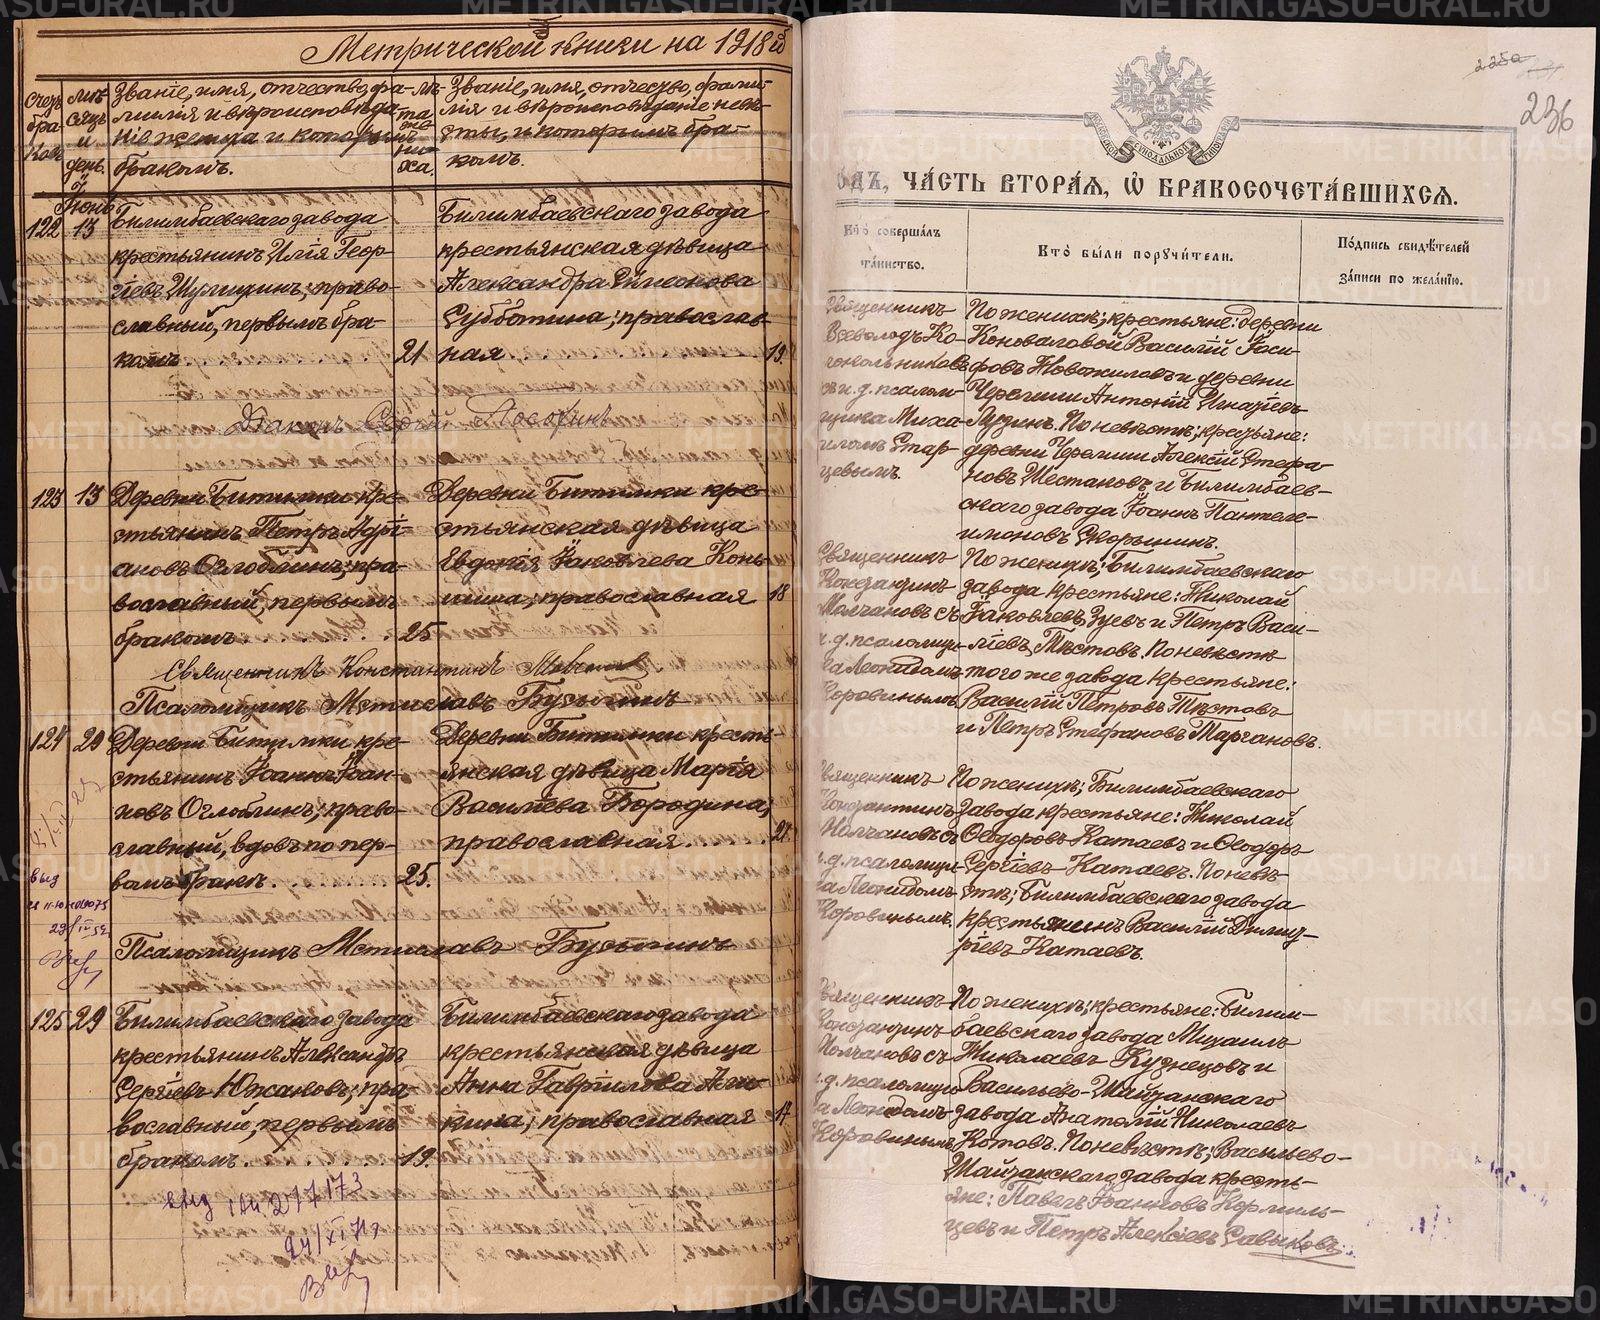 Метрической книги на 1918й
Счетъ бра-ковъ
мѣ-сяцъ и день.
Званіе, имя, отчество, фа-
милія и вѣроисповѣда-
ніе жениха и которымъ
бракомъ.
Лѣ-та же-ни-ха.
Званіе, имя, отчество, фами-
лія и вѣроисповѣданіе невѣ-
сты, и которымъ бра-
комъ.
Іюнь
122 13 Билимбаевскаго завода
крестьянинъ Илія Геор-
гіевъ Шулицинъ; право-
славный, первымъ бра-
комъ. 21
Билимбаевскаго завода
крестьянская дѣвица
Александра Симеонова
Субботина; православ-
ная 19.
Діаконъ Сергій
123 13 Деревни Битимки кре-
стьянинъ Петръ Адрі-
ановъ Оглоблинъ; пра-
вославный, первымъ
бракомъ. 25.
Деревни Битимки кре-
стьянская дѣвица
Евдокія Іаковлева Конь-
шина; православная 18
Священникъ Константинъ Молчановъ
Псаломщикъ Мстиславъ Бусыгинъ
124 20 Деревни Битимки кре-
стьянинъ Іоаннъ Іоан-
новъ Оглоблинъ; право-
славный, вдовъ по пер-
вомъ бракѣ. 25.
Деревни Битимки кресть-
янская дѣвица Марія
Васильева Бородина;
православная. 21.
выд
Псаломщикъ Мстиславъ Бусыгинъ
125 29 Билимбаевскаго завода
крестьянинъ Александръ
Сергіевъ Южаковъ; пра-
вославный, первымъ
бракомъ. 19.
Билимбаевскаго завода
крестьянская дѣвица
Анна Гавріилова Али-
кина; православная 17
выд 277173
24/XI 71г
236
ОДЪ, ЧАСТЬ ВТОРАЯ, Ѡ БРАКОСОЧЕТАВШИХСЯ.
Кто совершалъ
таинство.
Кто были поручители.
Подпись свидѣтелей
записи по желанію.
Священникъ
Всеволодъ Ко-
кольниковъ
съ и. д. псалом-
щика Миха-
иломъ Стар-
цевымъ.
По женихѣ; крестьяне: деревни
Коноваловой Василій Іоси-
фовъ Новожиловъ и деревни
Черемши Антоній Игнатіевъ
Лузинъ. По невѣстѣ; крестьяне:
деревни Черемши Алексій Стефа-
новъ Шестаковъ и Билимбаев-
скаго завода Іоаннъ Пантеле-
имоновъ Скорынинъ.
Священникъ
Константинъ
Молчановъ съ
и. д. псаломщи-
ка Леонидомъ
Коровинымъ
По женихѣ; Билимбаевскаго
завода крестьяне: Николай
Іаковлевъ Зуевъ и Петръ Васи-
ліевъ Тѣстовъ. По невѣстѣ
того же завода крестьяне:
Василій Петровъ Тѣстовъ
и Петръ Стефановъ Таргановъ.
Священникъ
Константинъ
Молчановъ съ
и. д. псаломщи-
ка Леонидомъ
Коровинымъ.
По женихѣ; Билимбаевскаго
завода крестьяне: Николай
Ѳеодоровъ Катаевъ и Ѳеодоръ
Сергіевъ Катаевъ. По невѣ-
стѣ; Билимбаевскаго завода
крестьянинъ Василій Димит-
ріевъ Катаевъ.
Священникъ
Константинъ
Молчановъ съ
и. д. псаломщи-
ка Леонидомъ
Коровинымъ
По женихѣ; крестьяне: Билим-
баевскаго завода Михаилъ
Николаевъ Кузнецовъ и
Васильево-Шайтанскаго
завода Анатолій Николаевъ
Котовъ. По невѣстѣ; Васильево-
Шайтанскаго завода кресть-
яне: Павелъ Іоанновъ Кормиль-
цевъ и Петръ Алексіевъ Савыковъ.
METRIKI.GASO-URAL.RU